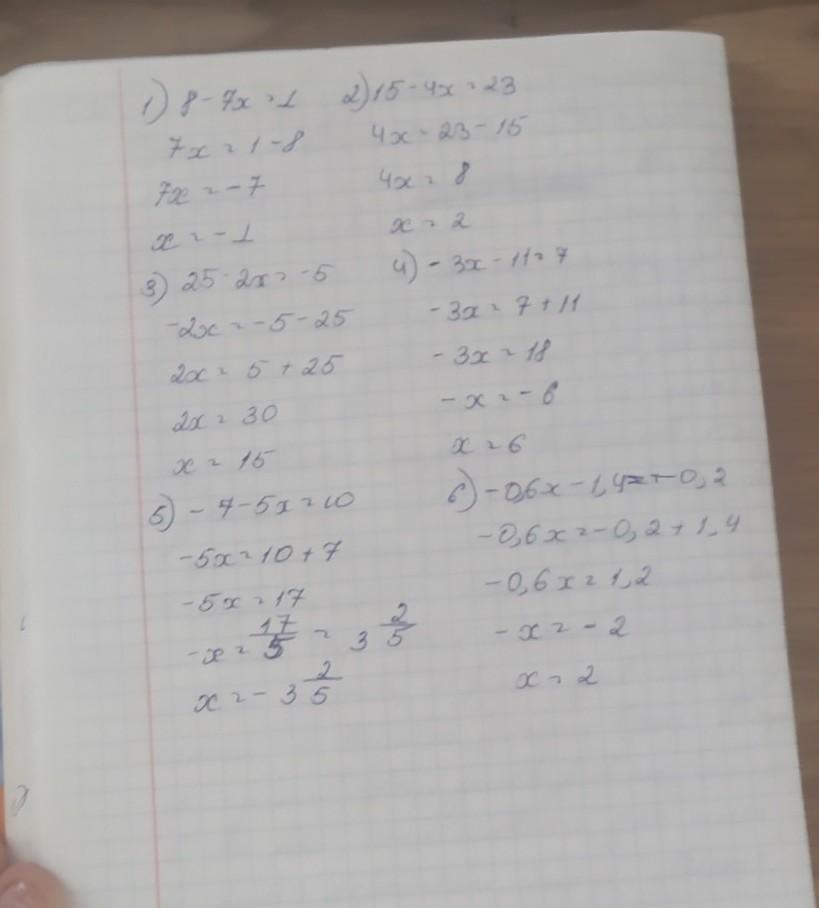 1) 8 - 7x = 1
7x = 1 - 8
7x = -7
x = -1
2) 15 - 4x = 23
4x = 23 - 15
4x = 8
x = 2
3) 25 - 2x = -5
-2x = -5 - 25
2x = 5 + 25
2x = 30
x = 15
4) - 3x - 11 = 7
-3x = 7 + 11
-3x = 18
-x = -6
x = 6
5) - 7 - 5x = 10
-5x = 10 + 7
-5x = 17
-x = 17/5 = 3 2/5
x = - 3 2/5
6) -0,6x - 1,4 = -0,2
-0,6x = -0,2 + 1,4
-0,6x = 1,2
-x = -2
x = 2